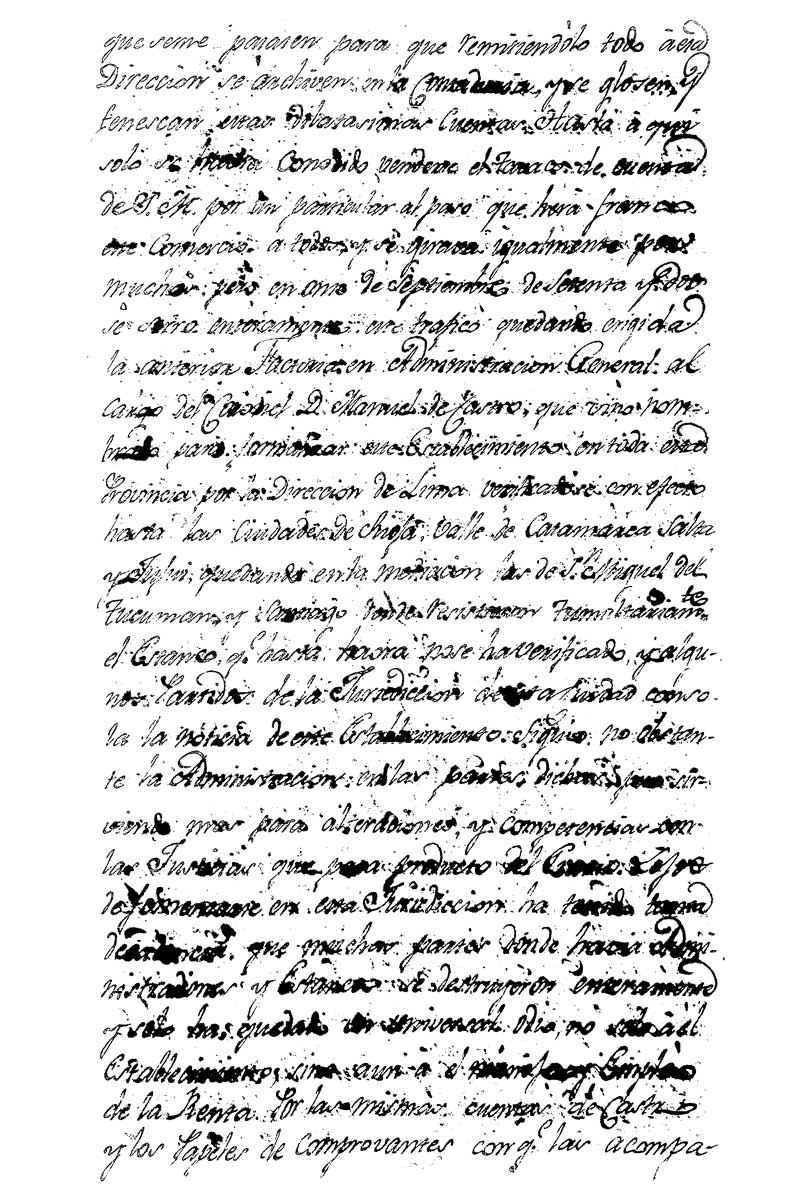 que seme pasasen para que remitiendolo todo à esa
Direccion se archiven en la Contaduria, y se glosen, y
fenescan estas dilatasimas Cuentas. Hasta à qui
solo se havia Conosido venderse el Tavaco de cuenta
de S. M. por un particular al paso que hera franco
este Comercio a todos, y se girava igualmente por
muchos pero en onse de Septiembre de Setenta y dos
se enteramente este trafico quedando erigida
la anterior Factoria en Administracion General al
cargo del Coronel D. Manuel de Castro, que vino nom-
brado para formalizar este Establecimiento en toda esta
Provincia por la Direccion de Lima verificadose con efecto
hasta las Ciudades de Rioja, Valle de Catamarca Salta
y Jujui, quedando en la las de S. Miguel del
Tucuman, y Santiago donde resistieron Tumultuariam.te
el Estanco, q.e hasta haora no se ha verificado, y algu-
nos Partidos de la Jurisdiccion de esta Ciudad con so-
la la noticia de este Establecimiento. Siguio no obstan-
te la Administracion en las partes dichas, pero sir-
viendo mas para alteraciones, y competencias con
las Justicias que para producto del Lejos
de fomentarse en esta Jurisdiccion ha tenido tanta
decadencia, que muchas partes donde havia Admi-
nistradores y Estancos se destruyeron enteramente
y solo ha quedado un universal odio, no solo à èl
Establecimiento, sino aun à el manejo y Empleo
de la Renta. Por las mismas cuentas de Castro
y los Papeles de Comprovantes con q.e las acompa-